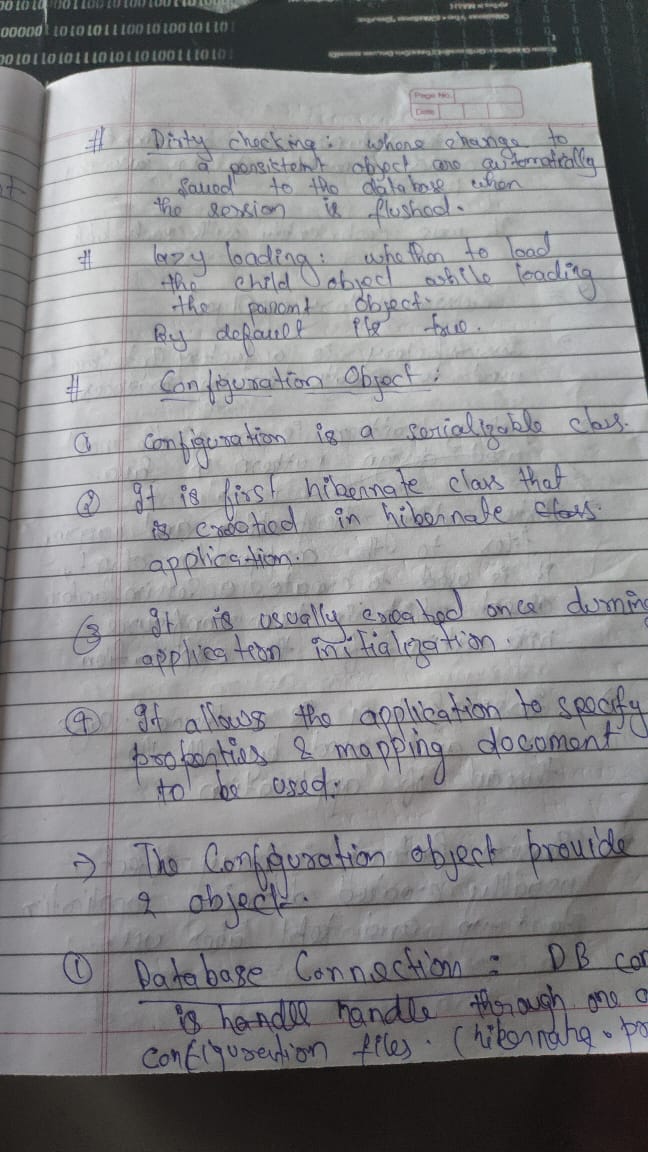 001010
00000110101011110010100101101
0010110101110101101001110101
Page No.
Date
# Dirty checking: where change to
a persistent object are automatically
saved to the database when
the session is flushed.
# lazy loading: whether to load
the child object while loading
the parent object.
By default it is true.
# Configuration Object:
① Configuration is a serializable class.
② It is first hibernate class that
is created in hibernate class.
application.
③ It is usually created once during
application initialization.
④ It allows the application to specify
properties & mapping document
to be used.
→ The Configuration object provide
2 object.
① Database Connection: DB con
is handle handle through one o
configuration files. (hibernate. pr